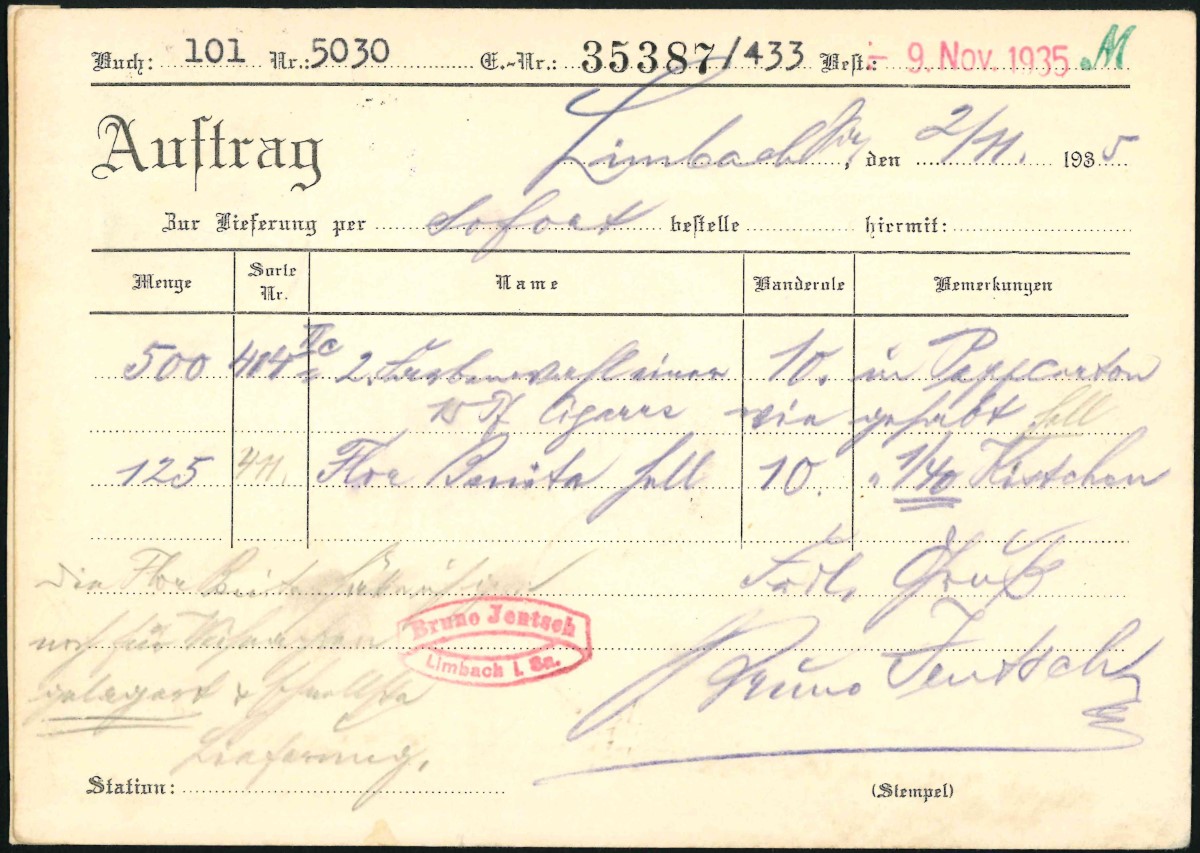 Buch: 101 Nr.: 5030 E.-Nr.: 35387/433 Best.: - 9. Nov. 1935 M
Auftrag Limbach Sa, den 2/11. 1935
Zur Lieferung per sofort bestelle hiermit:
Menge Sorte Nr. Name Banderole Bemerkungen
500 414 IIc 2. 10. in Pappcarton
15 Pf Cigarre wie gehabt hell
125 411. Flor Benita hell 10. " 1/40 Kistchen
Frdl. Gruß
Die Flor
Bruno Jentsch
Limbach i. Sa.
noch für
Bruno Jentsch
gelagert &
Lieferung.
Station: (Stempel)